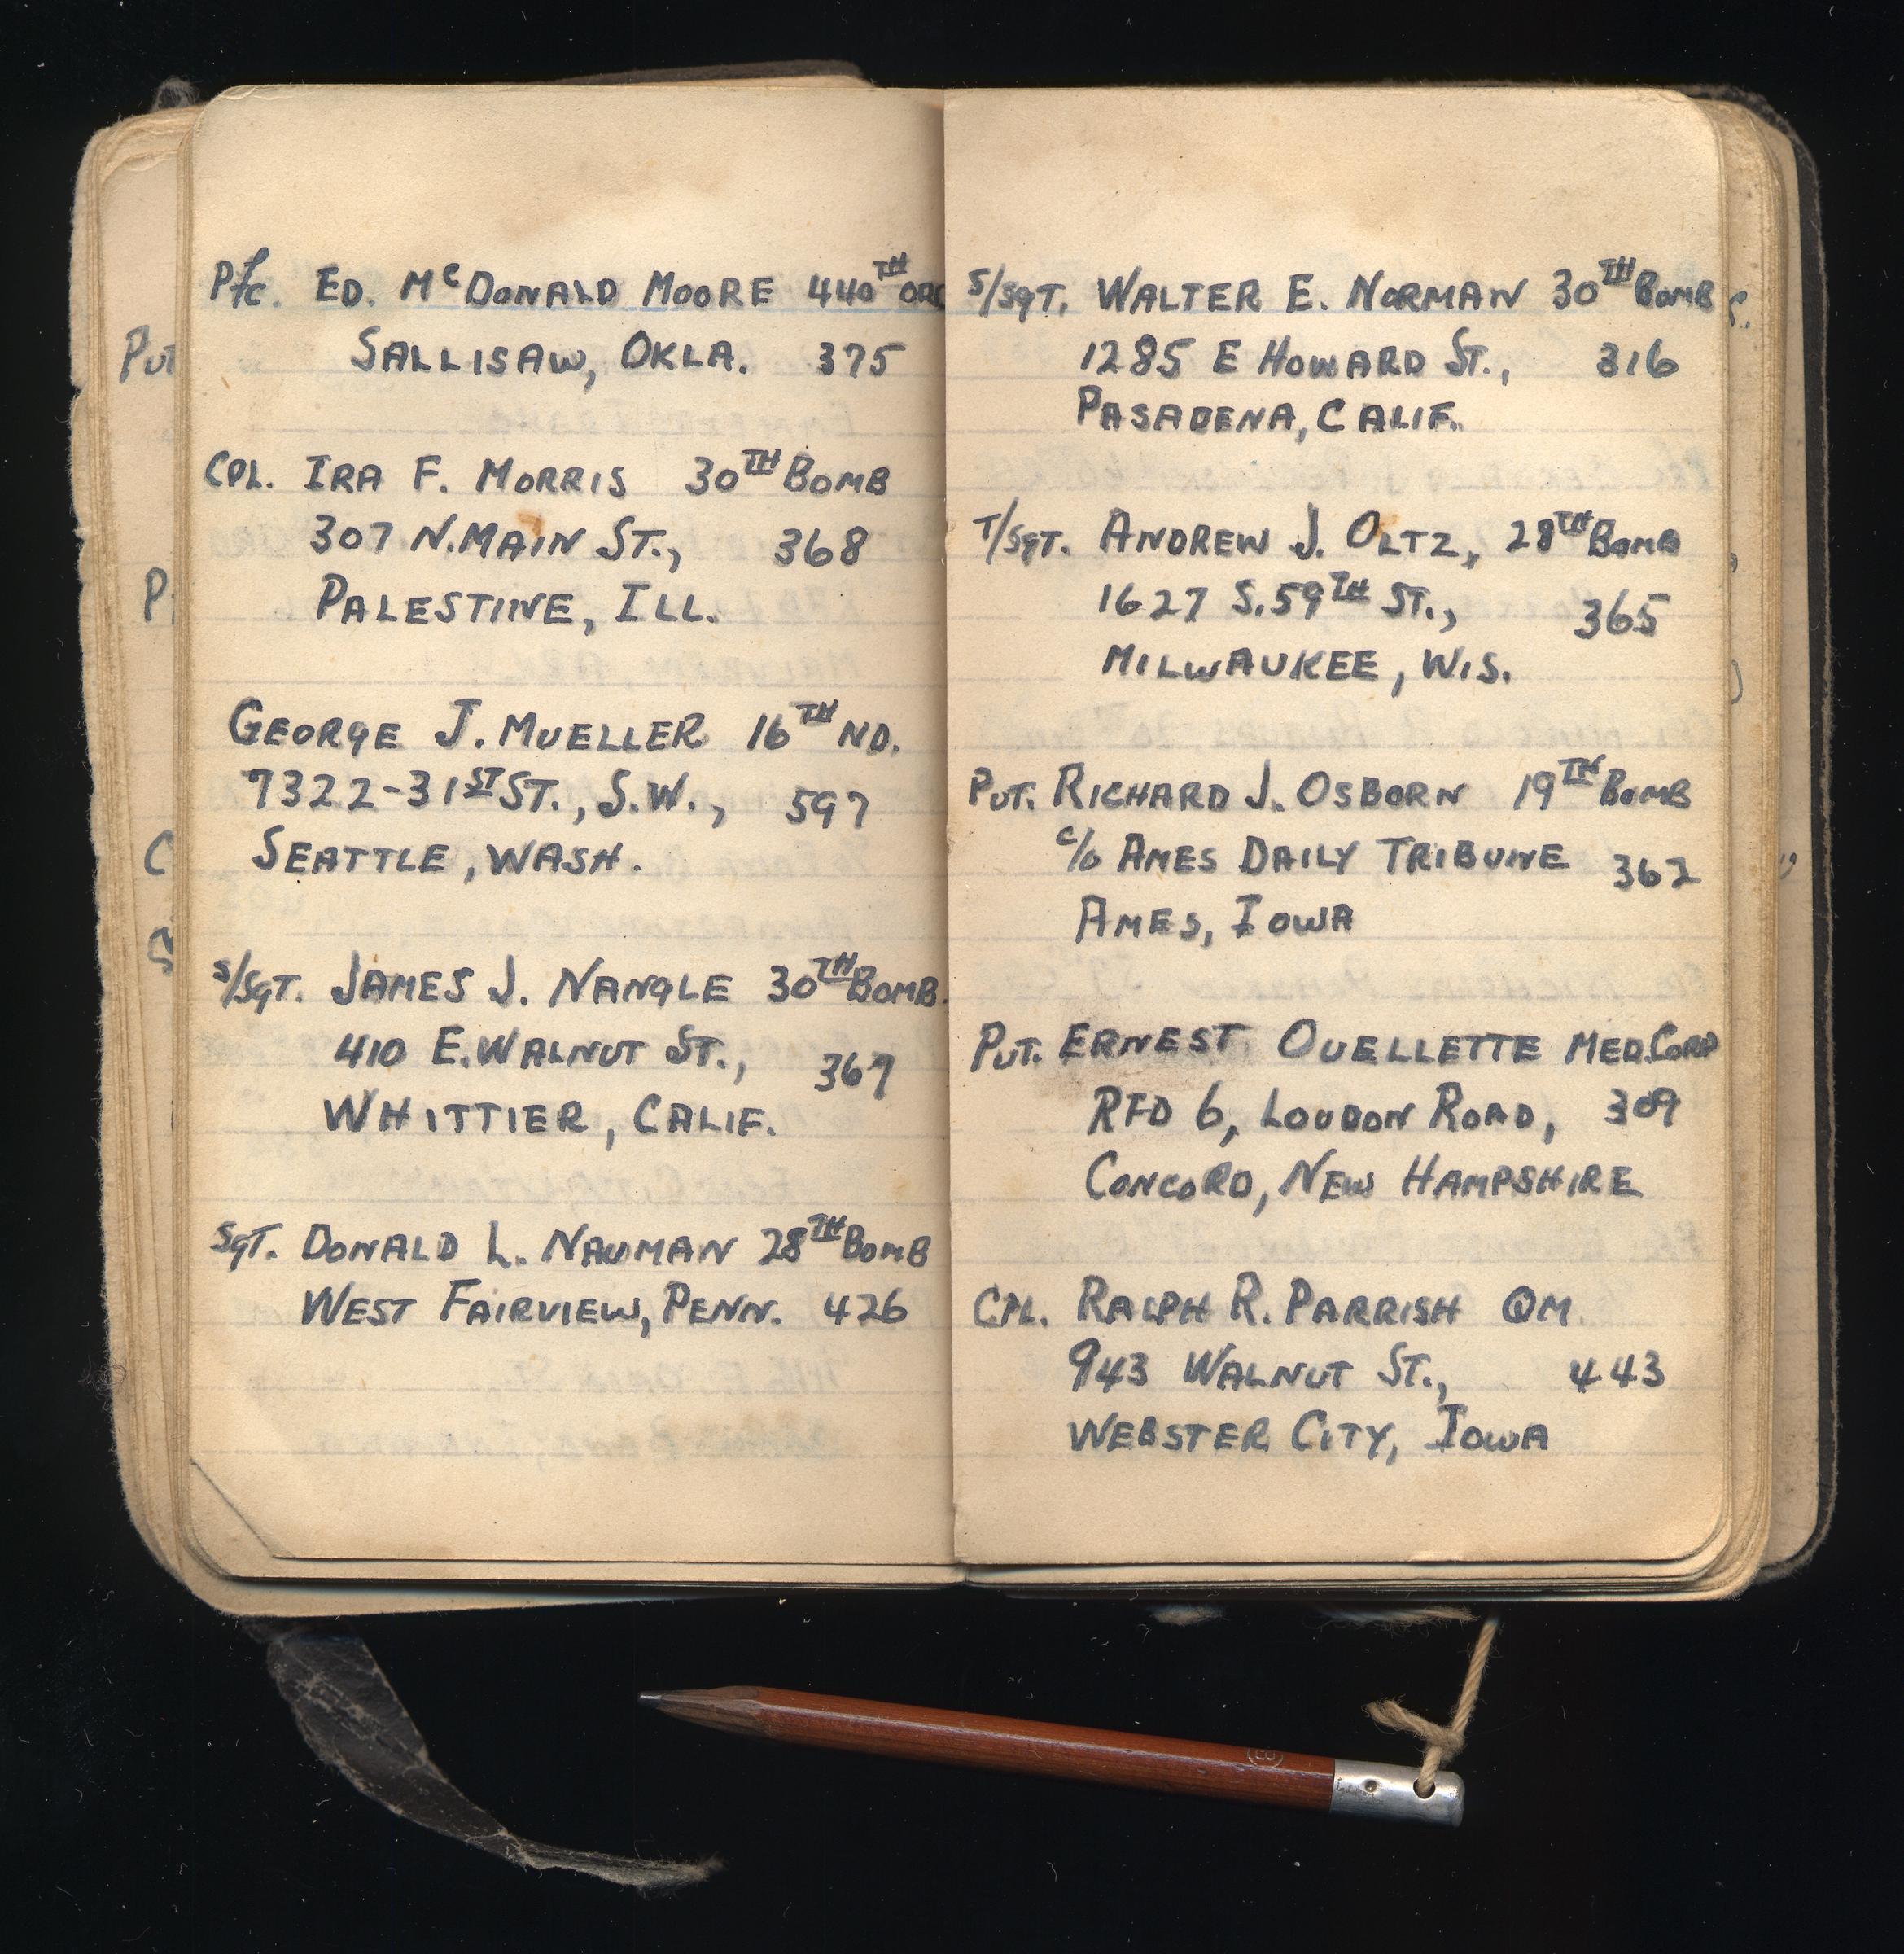 Pfc. ED. McDONALD MOORE 440TH ORD
SALLISAW, OKLA. 375
CPL. IRA F. MORRIS 30TH BOMB
307 N. MAIN ST., 368
PALESTINE, ILL.
GEORGE J. MUELLER 16TH ND.
7322-31ST ST., S.W., 597
SEATTLE, WASH.
S/SGT. JAMES J. NANGLE 30TH BOMB.
410 E. WALNUT ST., 367
WHITTIER, CALIF.
SGT. DONALD L. NAUMAN 28TH BOMB
WEST FAIRVIEW, PENN. 426
S/SGT. WALTER E. NORMAN 30TH BOMB
1285 E HOWARD ST., 316
PASADENA, CALIF.
T/SGT. ANDREW J. OLTZ, 28TH BOMB
1627 S. 59TH ST., 365
MILWAUKEE, WIS.
PVT. RICHARD J. OSBORN 19TH BOMB
c/o AMES DAILY TRIBUNE 362
AMES, IOWA
PVT. ERNEST OUELLETTE MED. CORP
RFD 6, LOUDON ROAD, 309
CONCORD, NEW HAMPSHIRE
CPL. RALPH R. PARRISH QM.
943 WALNUT ST., 443
WEBSTER CITY, IOWA